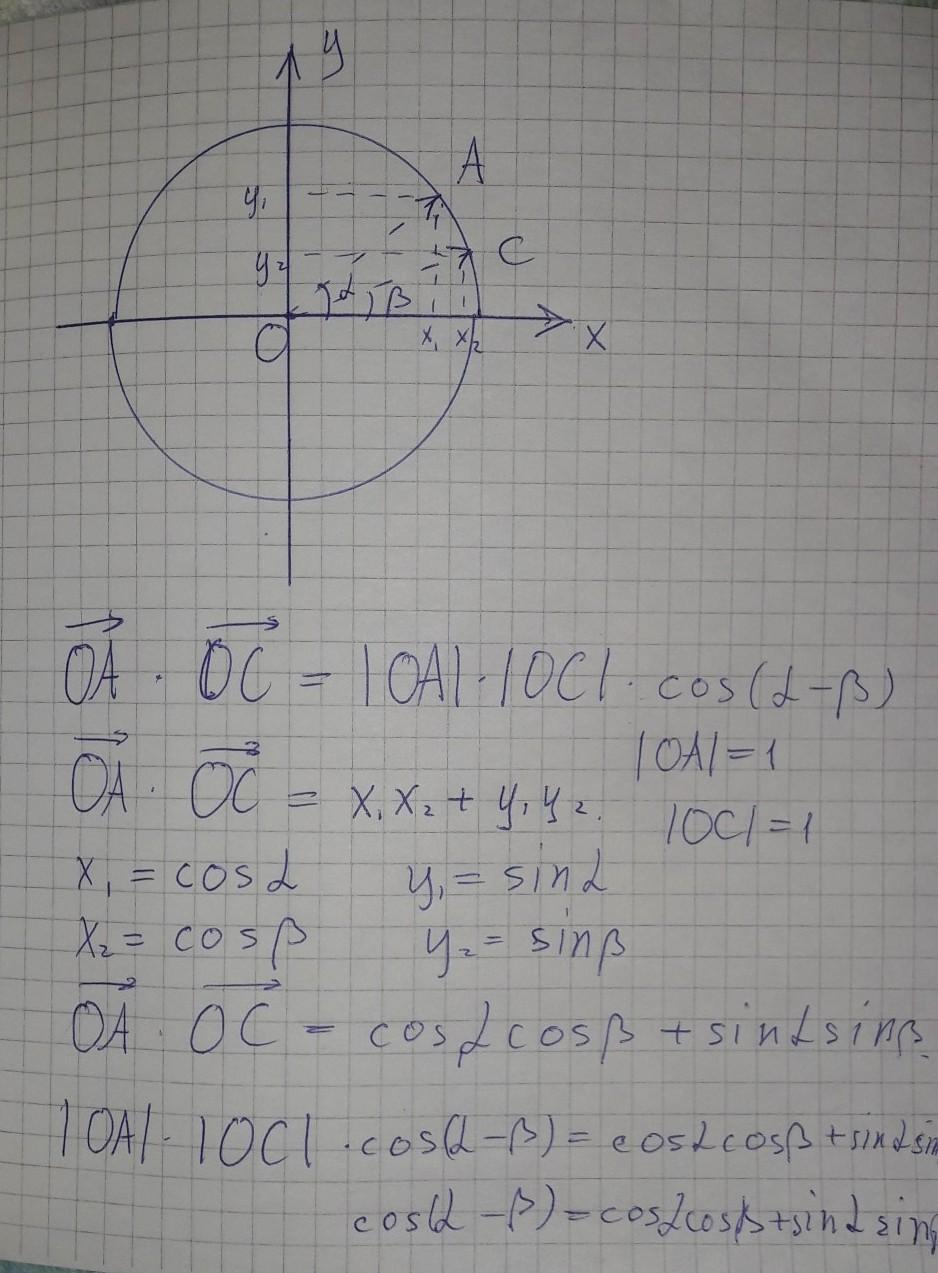 y
A
y₁
C
y₂
α β
O x₁ x₂ x
OA · OC = |OA| · |OC| · cos(α-β)
|OA| = 1
OA · OC = x₁x₂ + y₁y₂.
|OC| = 1
x₁ = cosα y₁ = sinα
x₂ = cosβ y₂ = sinβ
OA · OC = cosα cosβ + sinα sinβ.
|OA| · |OC| · cos(α-β) = cosα cosβ + sinα sin
cos(α-β) = cosα cosβ + sinα sinβ